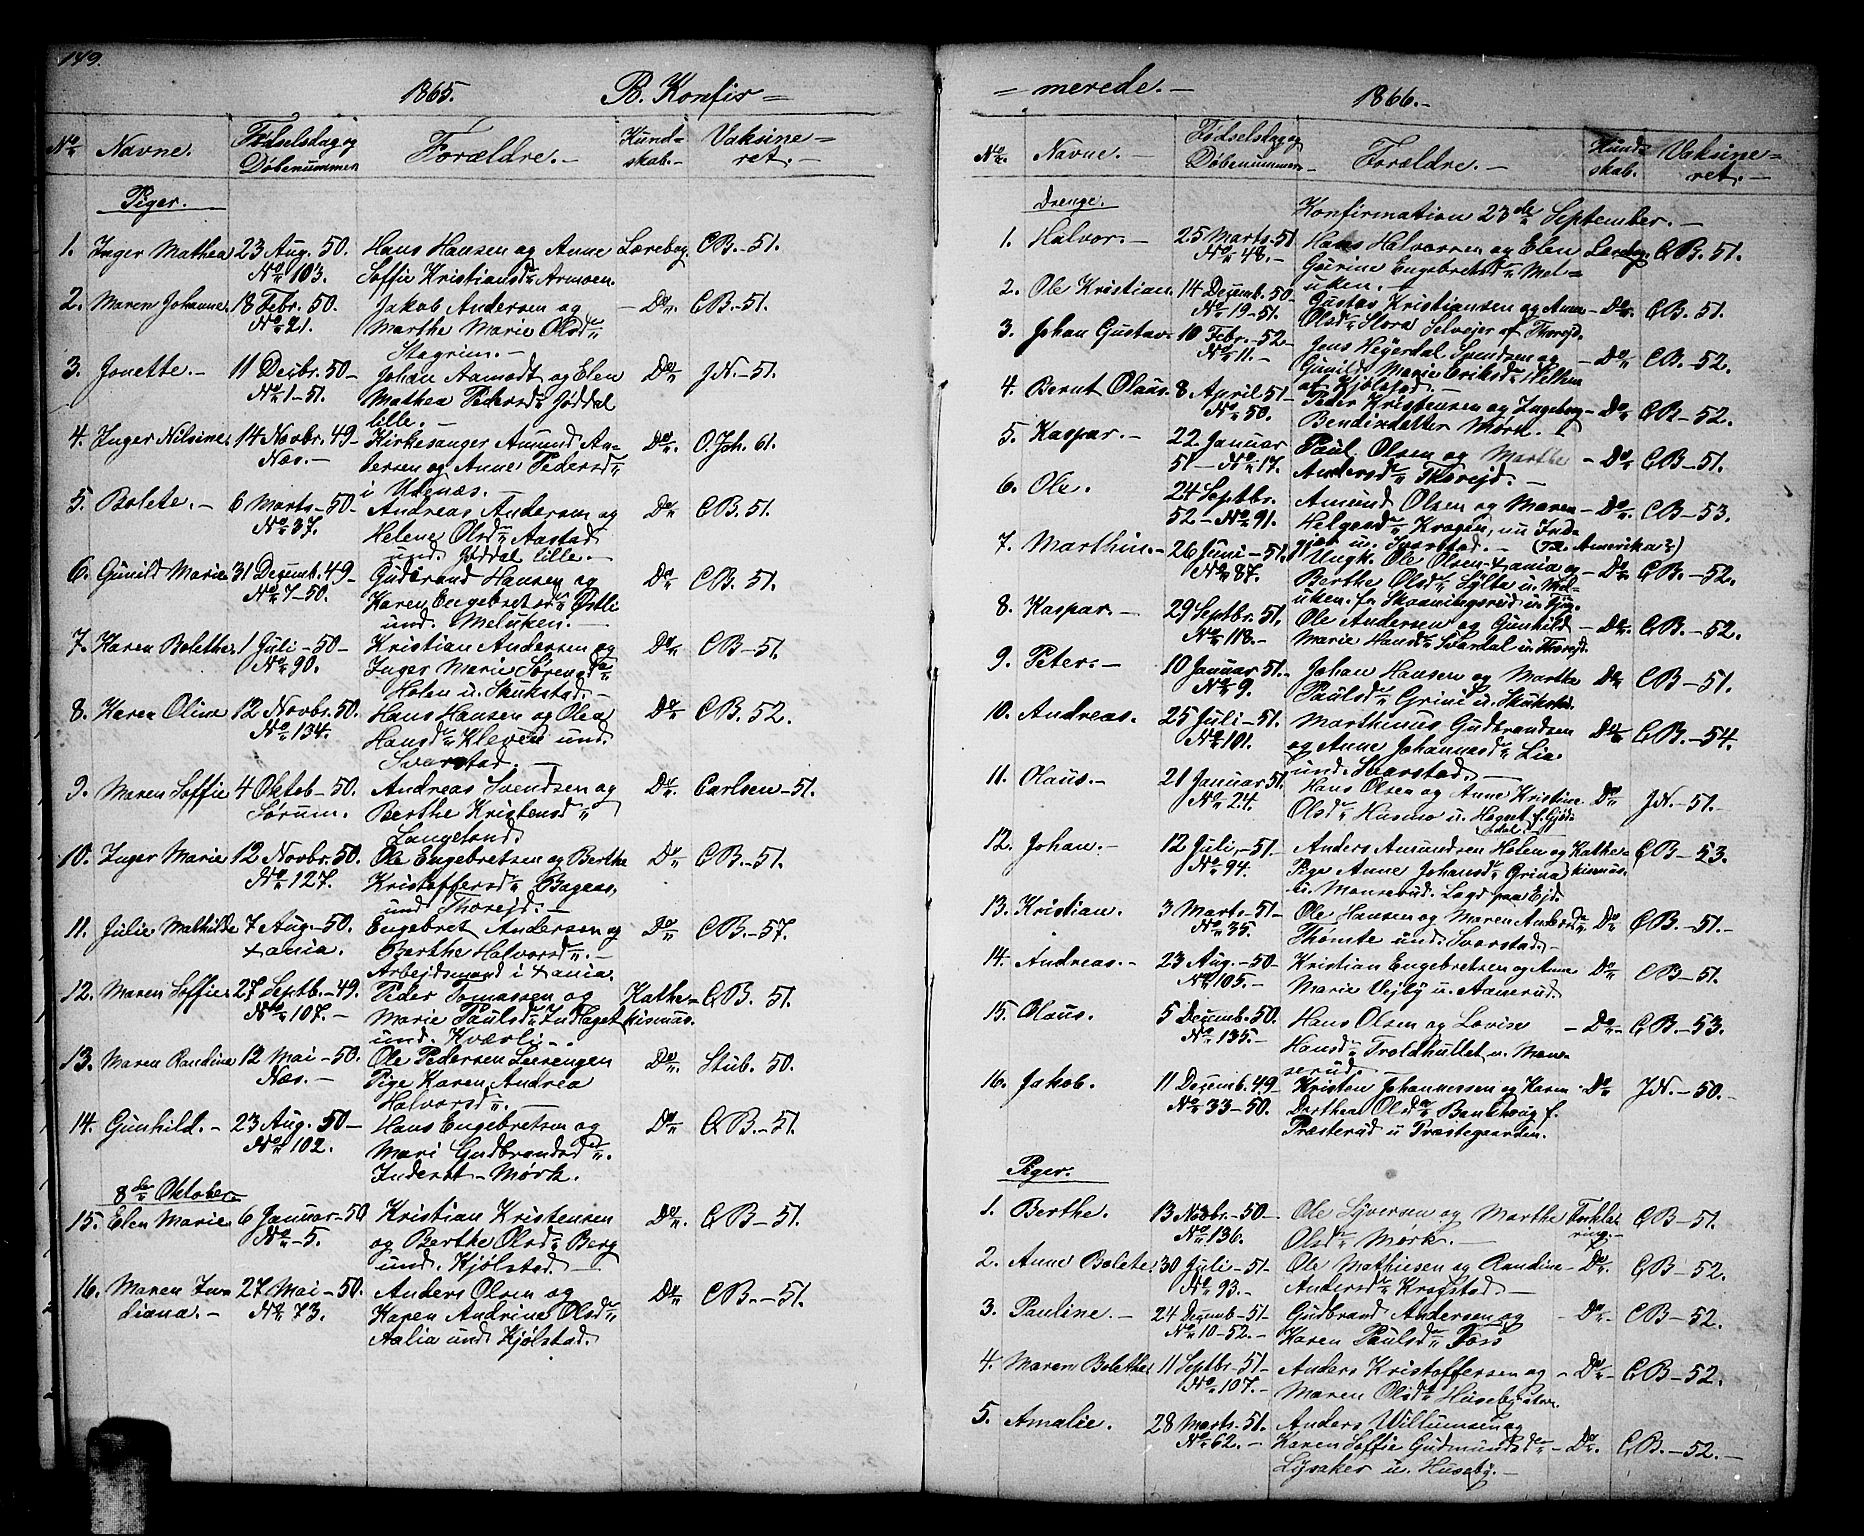 149.
1865. B. Konfir=
No. Navne. Fødselsdag og Døbenummer Forældre. Kundskab. Vaksineret.
Piger.
1. Inger Mathea 23 Aug. 50. Hans Hansen og Anne Lærebog CB. 51.
No 103. Soffie Kristiansd. Armoen.
2. Maren Johanne 18 Febr. 50. Jakob Andersen og Do CB. 51.
No 21. Marthe Marie Olsd.
Stagrim.
3. Jonette. 11 Decbr. 50 Johan Aamodt og Elen Do JN. 51.
No 1-51. Mathea Pedersd. Jøddal
lille.
4. Inger Nilsine 14 Novbr. 49 Kirkesanger Amund An- Do O. Joh. 61.
Næs. dersen og Anne Pedersd.
i Udenæs.
5. Bolete. 6 Marts 50 Andreas Andersen og Do CB. 51.
No 37. Helene Olsd. Aastad
und. Jøddal lille.
6. Gunild Marie 31 Decemb. 49 Gudbrand Hansen og Do CB. 51.
No 7-50. Karen Engebretsd. Østli
und. Meluken.
7. Karen Bolethe 1 Juli 50 Kristian Andersen og Do CB 51.
No 90. Inger Marie Sørensd.
Holen u. Skukstad.
8. Karen Oline 12 Novbr. 50. Hans Hansen og Olea Do CB. 52.
No 134. Hansd. Kleven und.
Svarstad.
9. Maren Soffie 4 Oktob 50. Andreas Svendsen og Do Carlsen 51.
Sørum. Berthe Kristensd.
Langeland.
10. Inger Marie 12 Novbr. 50. Ole Engebretsen og Berthe Do CB. 51.
No 127. Kristoffersd. Bagaas,
und Thorejd.
11. Julie Mathilde 7 Aug. 50. Engebret Andersen og Do CB. 57.
Xania. Berthe Halvorsd.
Arbejdsmand i Xania.
12. Maren Soffie 27 Septb. 49. Peder Tomassen og Kathe- CB. 51.
No 107. Marie Paulsd. Indlaget kismus.
und. Kværli
13. Maren Randine 12 Mai 50. Ole Pedersen Leerengen Do Stub. 50.
Næs. Pige Karen Andrea
Halvorsd.
14. Gunhild. 23 Aug. 50 Hans Engebretsen og Do CB. 51.
No 102. Mari Gudbrandsd.
Inderst Mørk.
8de Oktober
15. Elen Marie 6 Januar 50 Kristian Kristensen Do CB 51.
No 5. og Berthe Olsd. Berg
und. Kjølstad.
16. Maren Jun- 27 Mai 50. Anders Olsen og Do CB. 51.
diana. No 73. Karen Andrine Olsd.
Aalia und Kjølstad.
= merede. 1866.
No. Navne. Fødselsdag og Døbenummer Forældre. Kundskab. Vaksineret.
Drenge. Konfirmation 23de September.
1. Halvor. 25 Marts 51 Hans Halvorsen og Elen Lærebog. CB. 51.
No 48. Gurine Engebretsd. Mel-
uken.
2. Ole Kristian. 14 Decemb. 50 Gustav Kristiansen og Anne Do. CB. 51.
No 19-51. Olsd. Store Selvejer af Thorejd.
3. Johan Gustav. 10 Febr. 52 Jens Hejerdal Svendsen og Do CB. 52.
No 11. Gunild Marie Eriksd.
af Kjølstad.
4. Bernt Olaus. 8 April 51 Peder Kristensen og Ingeborg Do CB 52.
No 50. Bendixdatter Mørk.
5. Kaspar. 22 Januar Paul Olsen og Marthe Do CB 51.
51 No 17. Andersd. Thorejd.
6. Ole. 24 Septbr. Amund Olsen og Maren Do. CB 53.
52 No 91. Helgesd. Kragen, nu Ind-
gjer u. Svarstad. (Til Amerika?)
7. Marthin. 26 Juni 51. Ungk. Ole Olsen Xania og Do CB. 52.
No 87. Berthe Olsd. Sylte u. Mel-
uken.
8. Kaspar. 29 Septbr. 51. Ole Andersen og Gunhild Do. CB. 52.
No 118. Marie Hansd. Svardal u. Thorejd.
9. Peter. 10 Januar 51. Johan Hansen og Marthe Do CB 51.
No 9. Paulsd. Grini u. Skukstad.
10. Andreas. 25 Juli 51. Marthinus Gudbrandsen Do CB. 54.
No 101. og Anne Johannesd. Lie
und. Svarstad.
11. Olaus. 21 Januar 51. Hans Olsen og Anne Kristine Do JN. 51.
No 24. Olsd. Husmo u.
12. Johan. 12 Juli 51 Anders Amundsen Holen og Kathe- CB 53.
No 94. Pige Anne Johansd. Grina kismus.
u. Monserud. Lagd paa Ejd.
13. Kristian. 3 Marts 51 Ole Hansen og Maren Andersd. Do CB. 51.
No 35. Thømte und. Svarstad.
14. Andreas. 23 Aug. 50 Kristian Engebretsen og Anne Do CB 51.
No 105. Marie Vejby u. Aamerud.
15. Olaus. 5 Decemb. 50. Hans Olsen og Lovise Do CB. 53.
No 135. Hansd. Troldhullet u. Mon-
serud.
16. Jakob. 11 Decemb. 49 Kristen Johannessen og Karen Do JN. 50.
No 33-50. Dorthea Olsd.
Præsterud u Præstegaarden.
Piger.
1. Berthe. 13 Novbr. 50 Ole Syversen og Marthe Forkla- CB 51.
No 136. Olsd. Mørk. ring.
2. Anne Bolete. 30 Juli 51 Ole Mathiesen og Randine Do. CB 52.
No 93. Andersd. Krofstad
3. Pauline. 24 Decemb 51 Gudbrand Andersen og Do CB 52.
No 10-52. Karen Paulsd. Foss
4. Maren Bolethe. 11 Septbr. 51 Anders Kristoffersen og Do CB 52.
No 107. Maren Olsd. Huseby
5. Amalie. 28 Marts 51. Anders Willumsen og
No 62. Karen Soffie Gudmundsd. Do. CB. 52.
Lysaker u. Huseby.